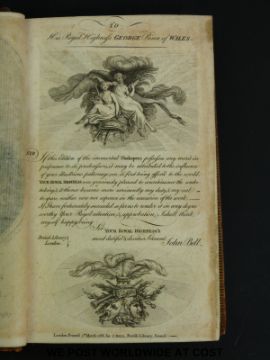 TO
His Royal Highness GEORGE Prince of WALES.
SIR
If this Edition of the immortal Shakspere possesses any merit in
preference to its predecessors, it may be attributed to the influence
of your illustrious patronage on its first being offer'd to the world.
YOUR ROYAL HIGHNESS was graciously pleased to countenance the under-
taking; it thence became more eminently my duty & my wish
to spare neither care nor expence in the execution of the work.
If I have fortunately succeeded so far as to render it in any degree
worthy Your Royal attention & approbation, I shall think
myself happy, being
Sir
YOUR ROYAL HIGHNESS'S
most dutiful & devoted Servant
John Bell.
British Library
London
London Printed
for J. Bell, British Library, Strand
WE POST WORLDWIDE AT COST